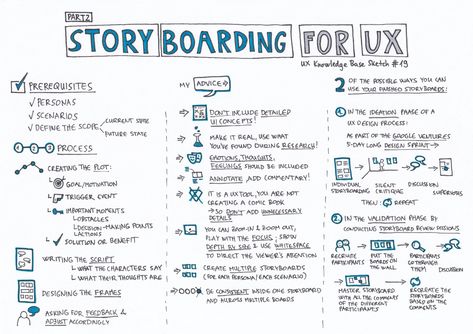 PART2
STORYBOARDING FOR UX
UX KNOWLEDGE BASE SKETCH #19
PREREQUISITES
√ PERSONAS
√ SCENARIOS
√ DEFINE THE SCOPE
CURRENT STATE
FUTURE STATE
1 2 3 PROCESS
CREATING THE PLOT:
GOAL/MOTIVATION
TRIGGER EVENT
IMPORTANT MOMENTS
OBSTACLES
DECISION-MAKING POINTS
ACTIONS
SOLUTION OR BENEFIT
WRITING THE SCRIPT
WHAT THE CHARACTERS SAY
WHAT THEIR THOUGHTS ARE
DESIGNING THE FRAMES
ASKING FOR FEEDBACK &
ADJUST ACCORDINGLY
MY ADVICE
DON'T INCLUDE DETAILED
UI CONCEPTS!
MAKE IT REAL, USE WHAT
YOU'VE FOUND DURING RESEARCH!
EMOTIONS, THOUGHTS,
FEELINGS SHOULD BE INCLUDED
ANNOTATE, ADD COMMENTARY!
IT IS A UX TOOL, YOU ARE NOT
CREATING A COMIC BOOK
→ SO DON'T ADD UNNECESSARY
DETAILS
YOU CAN ZOOM IN & ZOOM OUT,
PLAY WITH THE FOCUS, SHOW
DEPTH BY SIZE & USE WHITESPACE
TO DIRECT THE VIEWER'S ATTENTION
CREATE MULTIPLE STORYBOARDS
(FOR EACH PERSONA/EACH SCENARIO)
BE CONSISTENT INSIDE ONE STORYBOARD
AND ACROSS MULTIPLE BOARDS
2 OF THE POSSIBLE WAYS YOU CAN
USE YOUR FINISHED STORYBOARDS:
1. IN THE IDEATION PHASE OF A
UX DESIGN PROCESS:
AS PART OF THE GOOGLE VENTURES
5-DAY LONG DESIGN SPRINT →
INDIVIDUAL
STORYBOARDING
SILENT
CRITIQUE
DISCUSSION
SUPERVOTES
THEN: REPEAT
2. IN THE VALIDATION PHASE BY
CONDUCTING STORYBOARD REVIEW SESSIONS
RECRUITE
PARTICIPANTS
PUT THE
BOARDS ON
THE WALL
PARTICIPANTS
GO THROUGH
THEM
DISCUSSION
MASTER STORYBOARD
WITH ALL THE COMMENTS
OF THE DIFFERENT
PARTICIPANTS
RECREATE THE
STORYBOARDS
BASED ON THE
COMMENTS